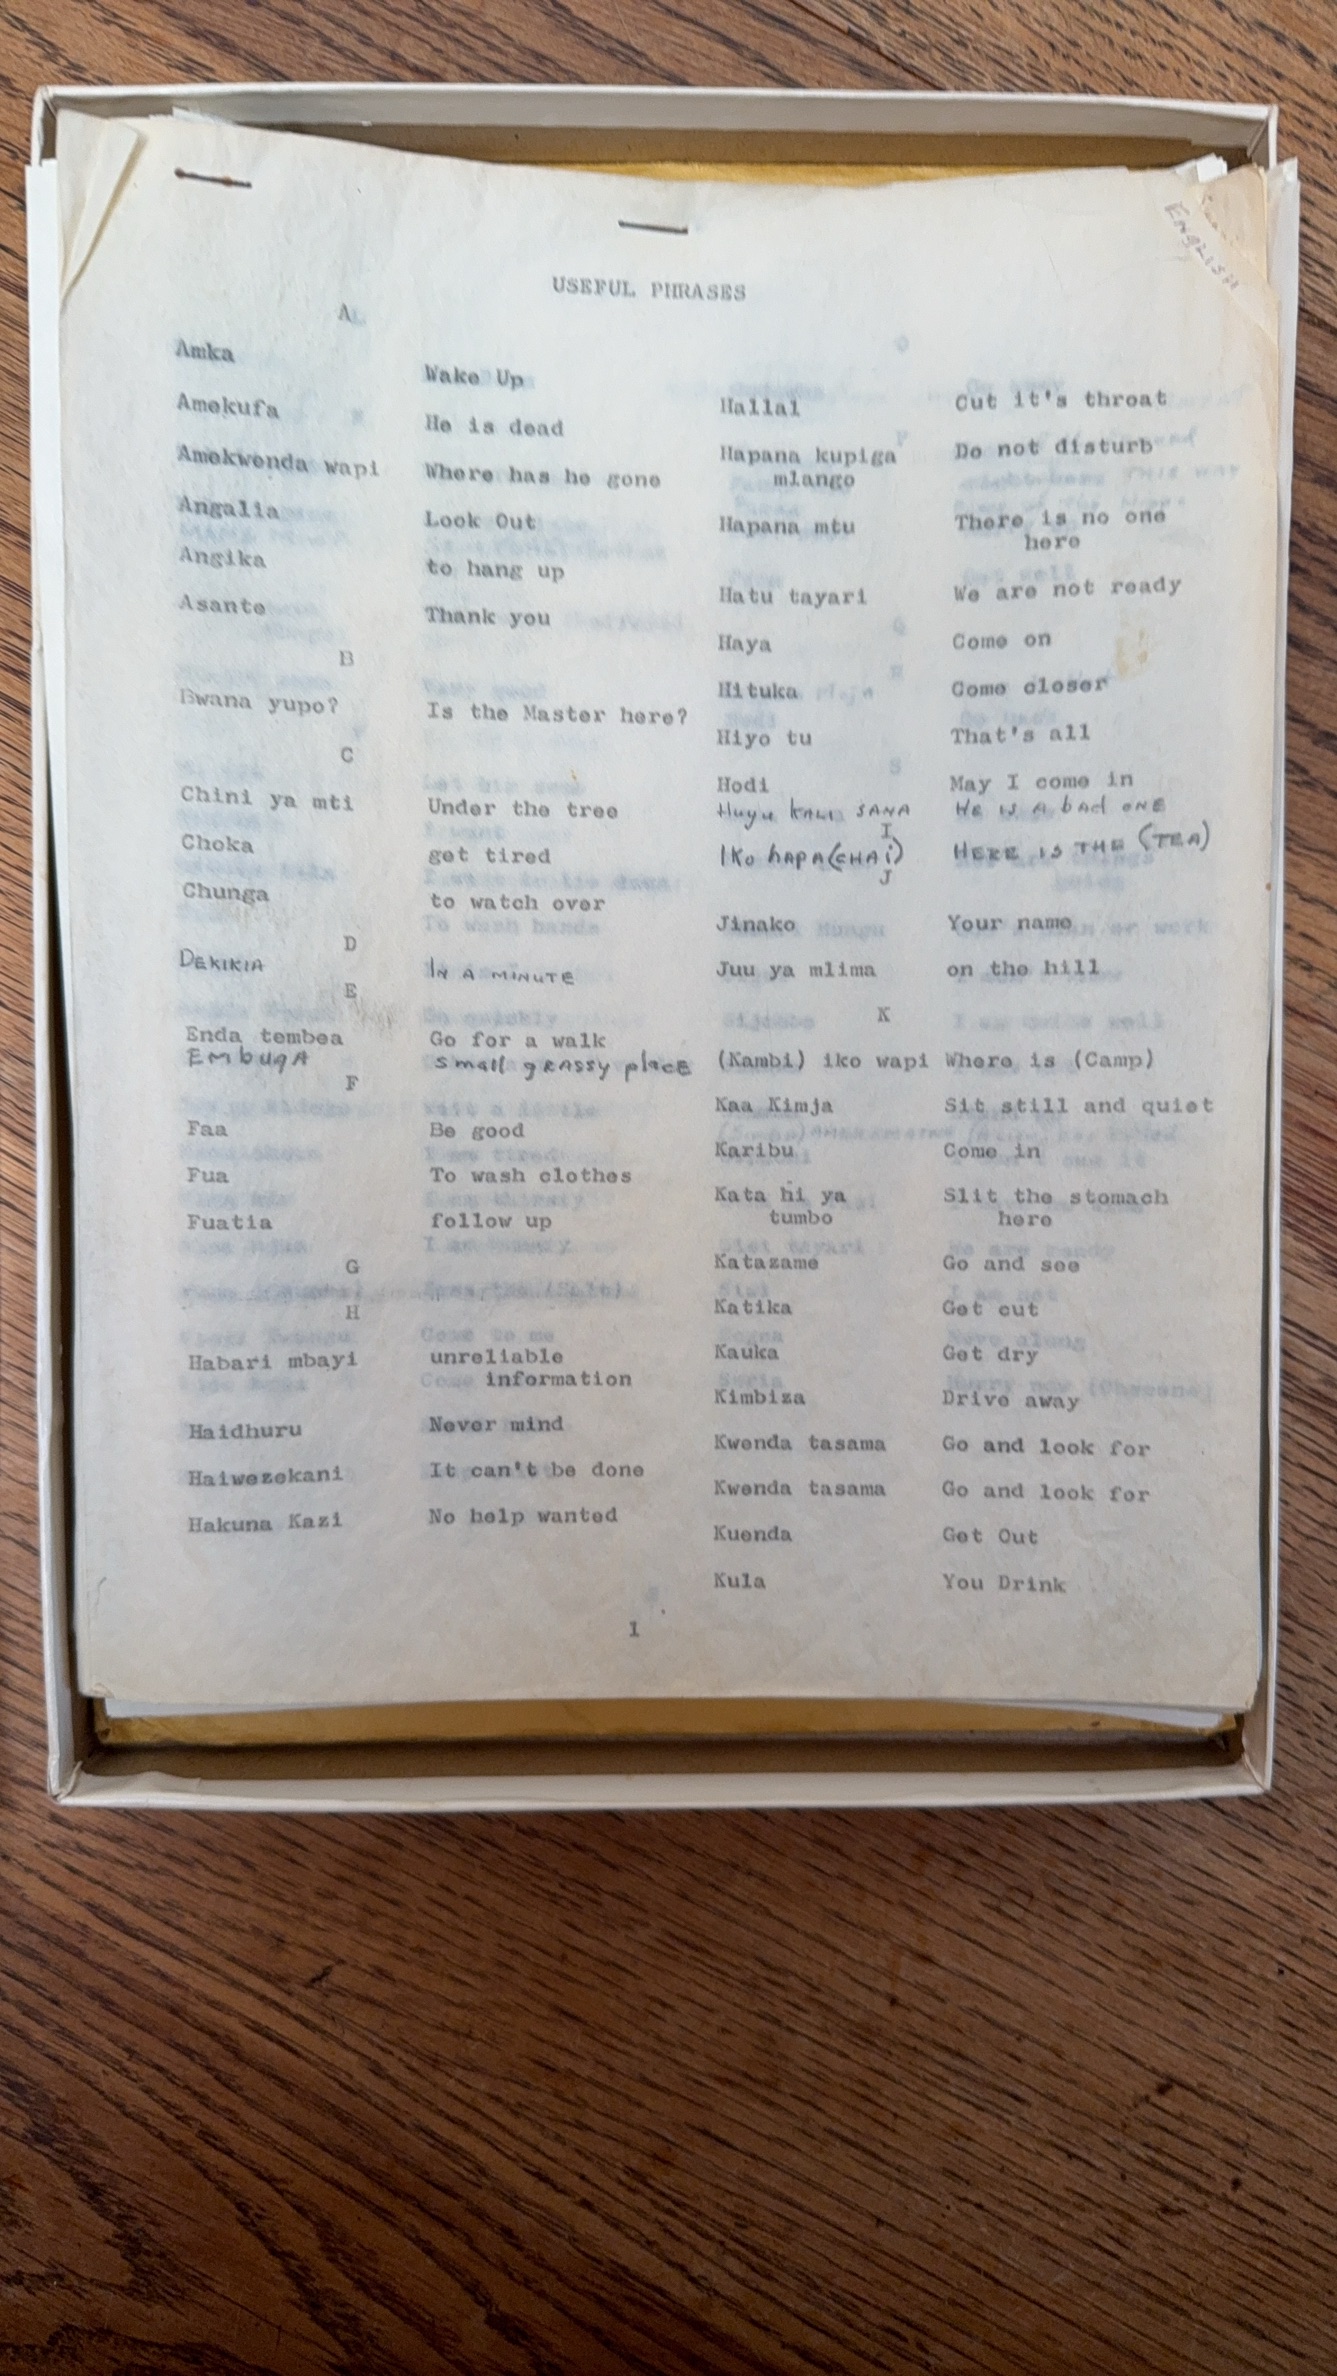 ENGLISH
USEFUL PHRASES
A
Amka Wake Up
Amekufa He is dead
Amekwenda wapi Where has he gone
Angalia Look Out
Angika to hang up
Asante Thank you
B
Bwana yupo? Is the Master here?
C
Chini ya mti Under the tree
Choka get tired
Chunga to watch over
D
DEKIKIA IN A MINUTE
E
Enda tembea Go for a walk
EMbugA small grassy place
F
Faa Be good
Fua To wash clothes
Fuatia follow up
G
H
Habari mbayi unreliable
information
Haidhuru Never mind
Haiwezekani It can't be done
Hakuna Kazi No help wanted
Hallal Cut it's throat
Hapana kupiga Do not disturb
mlango
Hapana mtu There is no one
here
Hatu tayari We are not ready
Haya Come on
Hituka Come closer
Hiyo tu That's all
Hodi May I come in
Huyu KALI SANA HE IS A bad ONE
I
IKo hAPA (CHAi) HERE IS THE (TEA)
J
Jinako Your name
Juu ya mlima on the hill
K
(Kambi) iko wapi Where is (Camp)
Kaa Kimja Sit still and quiet
Karibu Come in
Kata hi ya Slit the stomach
tumbo here
Katazame Go and see
Katika Get cut
Kauka Get dry
Kimbiza Drive away
Kwenda tasama Go and look for
Kwenda tasama Go and look for
Kuenda Get Out
Kula You Drink
1